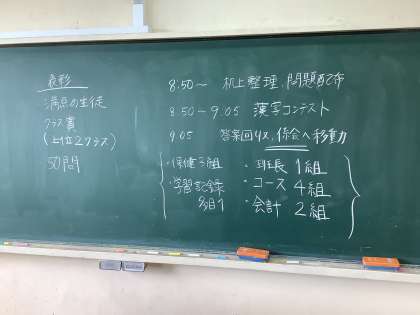 表彰
満点の生徒
クラス賞
(上位2クラス)
50問
8:50〜 机上整理、問題配布
8:50-9:05 漢字コンテスト
9:05 答案回収、係会へ移動
・保健 3組
・学習記録
・班長 1組
・コース 4組
・会計 2組